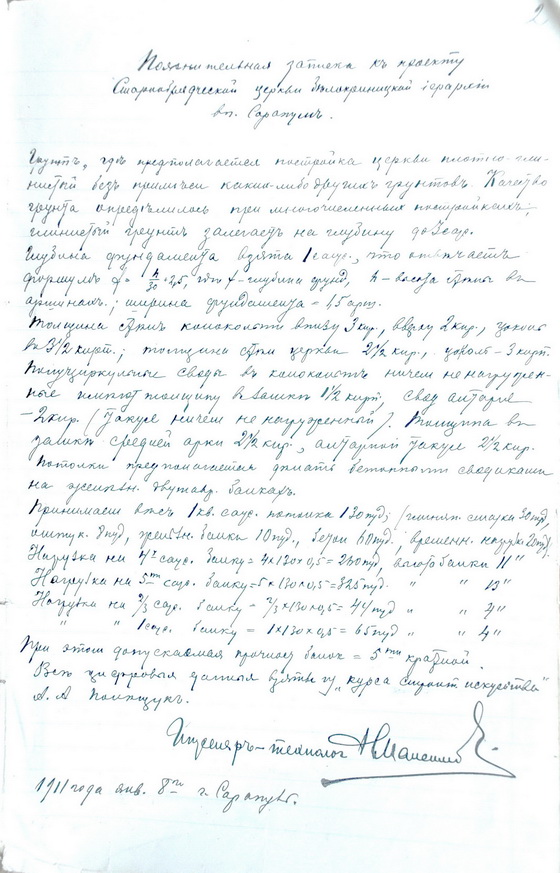 2
Пояснительная записка къ проекту
Старообрядческой церкви Бѣлокриницкой іерархіи
въ г. Сарапулъ.
Грунтъ, гдѣ предполагается постройка церкви плотно-гли-
нистый безъ примѣси какихъ-либо другихъ грунтовъ. Качество
грунта опредѣлилось при многочисленныхъ постройкахъ;
глинистый грунтъ залегаетъ на глубину до 3 саж.
Глубина фундамента взята 1 саж., что отвѣчаетъ
формулѣ f = h/30 + 2,5, где f - глубина фунд, h - высота стѣны въ
аршинахъ; ширина фундамента - 1,5 арш.
Толщина стѣнъ колокольни внизу 3 кир., вверху 2 кир., цоколь
въ 3 1/2 кирп.; толщина стѣн церкви 2 1/2 кир., цоколь - 3 кирп.
Полуциркульные своды въ колокольнѣ ничѣмъ не нагружен-
ные имѣютъ толщину въ замкѣ 1 1/2 кирп, сводъ алтаря
- 2 кир. (также ничѣмъ не нагруженный). Толщина въ
замкѣ средней арки 2 1/2 кир., алтарной также 2 1/2 кир.
Потолки предполагается сдѣлать бетонными сводиками
на желѣзн. двутавр. балкахъ.
Принимаемъ вѣсъ 1 кв. саж. потолка 130 пуд; (глинян. смазка 30 пуд
штук. 8 пуд, желѣзн. балка 10 пуд., бетон 60 пуд.; временн. нагрузка 20 пуд)
Нагрузка на 4х саж. балку = 4х130х0,5 = 260 пуд, высота балки 11"
Нагрузка на 5ти саж. балку = 5х130х0,5 = 325 пуд. " " 13"
Нагрузка на 2/3 саж. балку - 2/3х130х0,5 = 44 пуд " " 4"
" " 1 саж. балку = 1х130х0,5 = 65 пуд " " 4"
При этом допускаемая прочность балок = 5ти кратной.
Всѣ цифровыя данныя взяты изъ "курса строит. искусства"
А. А
Инженеръ-технологъ
1911 года янв. 8го г. Сарапулъ.